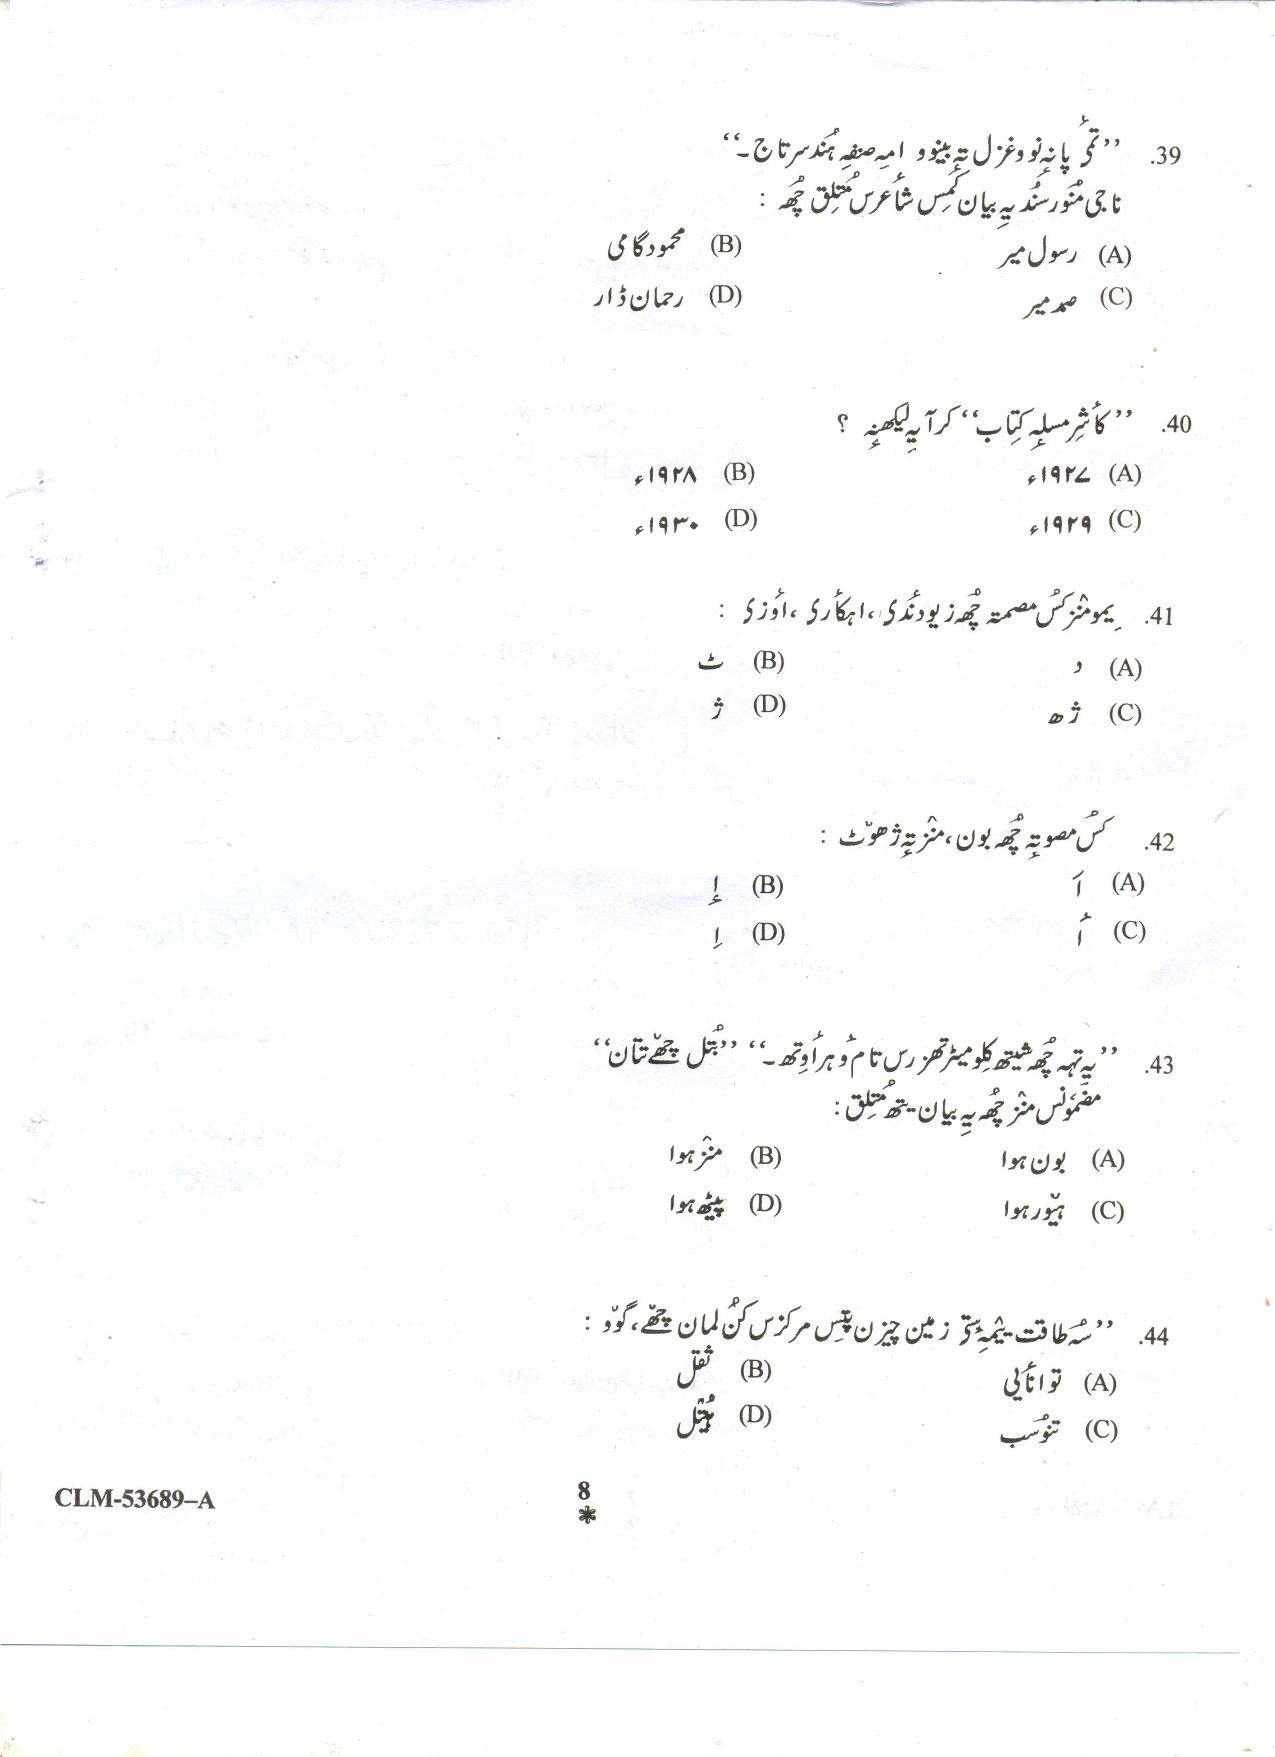 39. ’’تمۍ پانہٕ نوو غزل تہٕ بینوو امہ صنفہٕ ہُند سرتاج۔‘‘
ناجی مُنور سُند یہِ بیان کَمِس شٲعرس مُتلِق چھُہ :
(A) رسول میر (B) محمود گامی
(C) صمد میر (D) رحمان ڈار
40. ’’کٲشِر مسلہٕ کِتاب‘‘ کر آیہِ لیکھنہٕ ؟
(A) ۱۹۲۷ء (B) ۱۹۲۸ء
(C) ۱۹۲۹ء (D) ۱۹۳۰ء
41. یِمو منٛز کُس مصمتہ چھُہ زیو دندٲی، اہکٲری، اٗوزی :
(A) د (B) ٹ
(C) ژھ (D) ژ
42. کُس مصوتہٕ چھُہ بون، منٛز تہٕ ژھوٚٹ :
(A) اَ (B) إ
(C) أ (D) اِ
43. ’’یہِ تہہ چھُہ شیٹھ کِلومیٹر تھزرس تام وٲہرٲوِتھ۔‘‘ ’’بُتل چھےٚ تتان‘‘
مضمونَس منٛز چھُہ یہِ بیان یتھ مُتلِق :
(A) بون ہوا (B) منٛز ہوا
(C) ہیوٚر ہوا (D) پیٹھ ہوا
44. ’’سُہ طاقت یٔمہِ سٟتۍ زمین چیزن پنٕنِس مرکزس کُن لمان چھےٚ، گوٚو :
(A) توانٲیی (B) ثقل
(C) تنوُسب (D)
CLM-53689–A
8